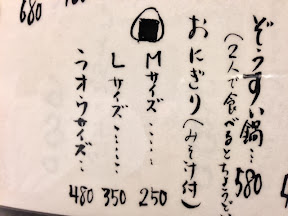 ぞうすい鍋…580
(2人で食べるとちょうど
おにぎり(みそ汁付)
Mサイズ……250
Lサイズ……350
ラオウサイズ…480
680